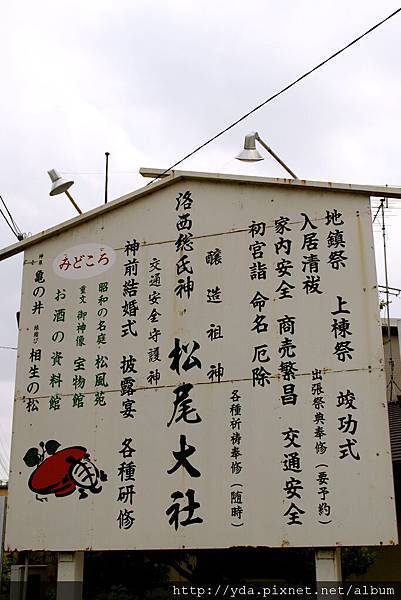 地鎮祭　上棟祭　竣功式
入居清祓　出張祭典奉修（要予約）
家内安全　商売繁昌　交通安全
初宮詣　命名　厄除
各種祈祷奉修（随時）
醸造祖神
洛西総氏神　松尾大社
交通安全守護神
神前結婚式　披露宴　各種研修
みどころ
昭和の名庭　松風苑
重文　御神像　宝物館
お酒の資料館
神泉　亀の井　縁結び　相生の松
http://yda.pixnet.net/album